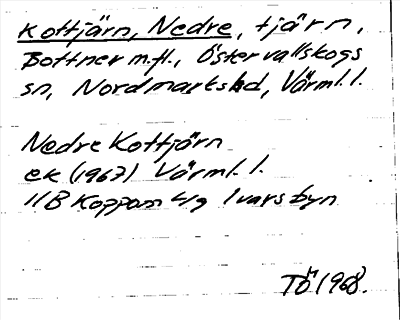 Kottjärn, Nedre, tjärn,
Bottner m.fl., Östervallskogs
sn, Nordmarks hd, Värml. l.
Nedre Kottjärn
ek (1967) Värml. l.
11B Koppom 4g Ivarsbyn
TÖ 1968.